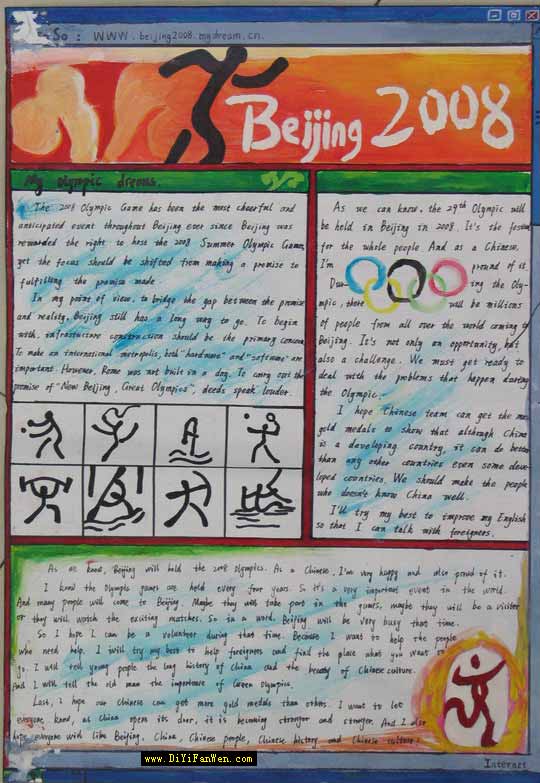 So: WWW.beijing2008.mydream.cn.
Beijing 2008
My olympic dreams.
The 2008 Olympic Game has been the most cheerful and
anticipated event throughout Beijing ever since Beijing was
rewarded the right to host the 2008 Summer Olympic Games,
yet the focus should be shifted from making a promise to
fulfilling the promise made.
In my point of view, to bridge the gap between the promise
and reality, Beijing still has a long way to go. To begin
with, infrasture construction should be the primary concern
To make an international metropolis, both "hardware" and "software" are
important. However, Rome was not built in a day. To carry out the
promise of "New Beijing, Great Olympics", deeds speak louder.
As we can know, the 29th Olympic will
be held in Beijing in 2008. It's the festival
for the whole people And as a Chinese,
I'm pround of it.
Du- ing the Oly-
mpic, there will be millions
of people from all over the world coming to
Beijing. It's not only an opportunity, but
also a challenge. We must get ready to
deal with the problems that happen during
the Olympic.
I hope Chinese team can get the more
gold medals to show that although China
is a daveloping country, it can do better
than any other countries even some deve-
loped countries. We should make the people
who doesn't know China well.
I'll try my best to improve my English
so that I can talk with foreigners.
As we know, Beijing will hold the 2008 olympics. As a Chinese, I'm very happy and also proud of it.
I know the Olympic games are held every four years. So it's a very important event in the world.
And many people will come to Beijing. Maybe they will take part in the games, maybe they will be a visiter
or they will watch the exiting matches. So in a word, Beijing will be very busy that time.
So I hope I can be a volunteer during that time. Because I want to help the people
who need help. I will try my best to help foreigners and find the place what you want to
go. I will tell young people the long history of China and the beauty of Chinese culture.
And I will tell the old man the importance of Green olympics.
Last, I hope our chinese can get more gold medals than others. I want to let
everyone know, as China opens its door, it is becoming stronger and stronger. And I also
hope everyone will like Beijing, China, Chinese people, Chinese history and Chinese culture.
www.DiYiFanWen.com
Internet